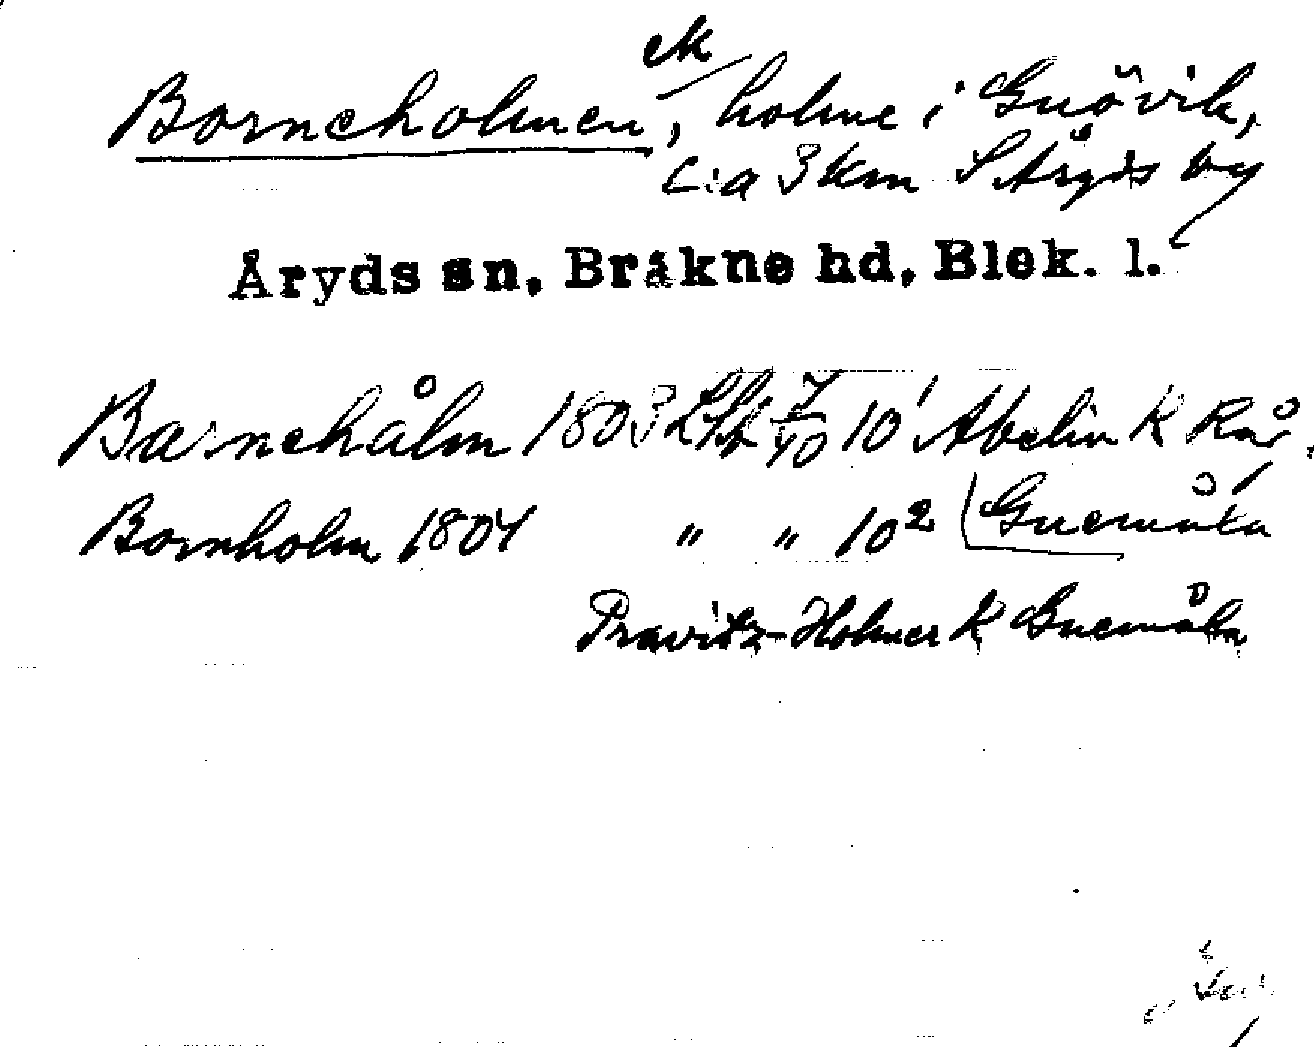 ek
Borneholmen, holme i Guövik,
c:a 3 km S Åryds by
Åryds sn, Bräkne hd, Blek. l.
Barnehålm 1803 LSA 7/40 10¹ Abelin K Rår,
Bornholm 1804 " " 10² Guemåla
Pravitz-Holmer K Guemåla